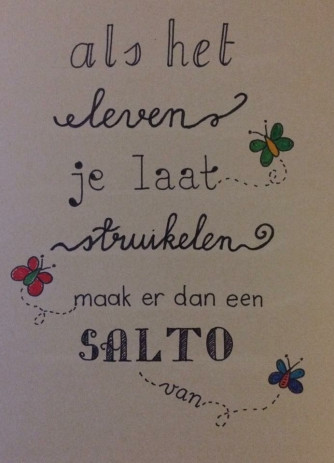 als het
leven
je laat
struikelen
maak er dan een
SALTO
van